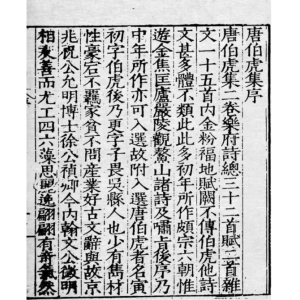 唐伯虎集序
唐伯虎集二卷樂府詩總三十二首賦二首雜
文一十五首內金粉福地賦闕不傳伯虎他詩
文甚多體不類此此多初年所作頗宗六朝惟
遊金焦匡廬嚴陵觀鰲山諸詩及嘯肓後序乃
中年所作亦可入選故附入選唐伯虎者名寅
初字伯虎後乃更字子畏吳縣人也少有雋材
性豪宕不羈家貧不問產業好古文辭與故京
兆祝公允明博士徐公禎卿今內翰文公徵明
相友善而尤工四六藻思麗逸翩翩有奇氣然